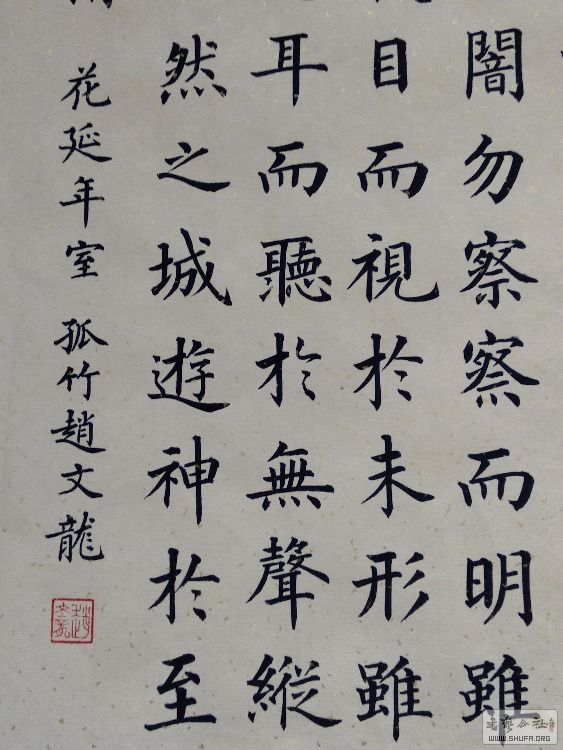 闇勿察察而明雖
目而視於未形雖
耳而聽於無聲縱
然之城遊神於至
花延年室 孤竹趙文龍
WWW.SHUFA.ORG